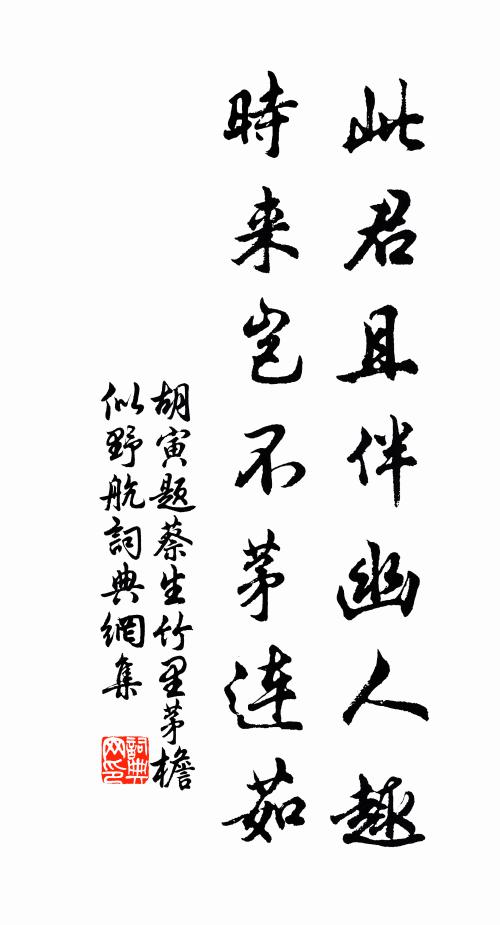 此君且伴幽人趣
時来岂不茅連茹
胡寅题蔡生竹里茅檐
似野航詞典網集
詞典网印